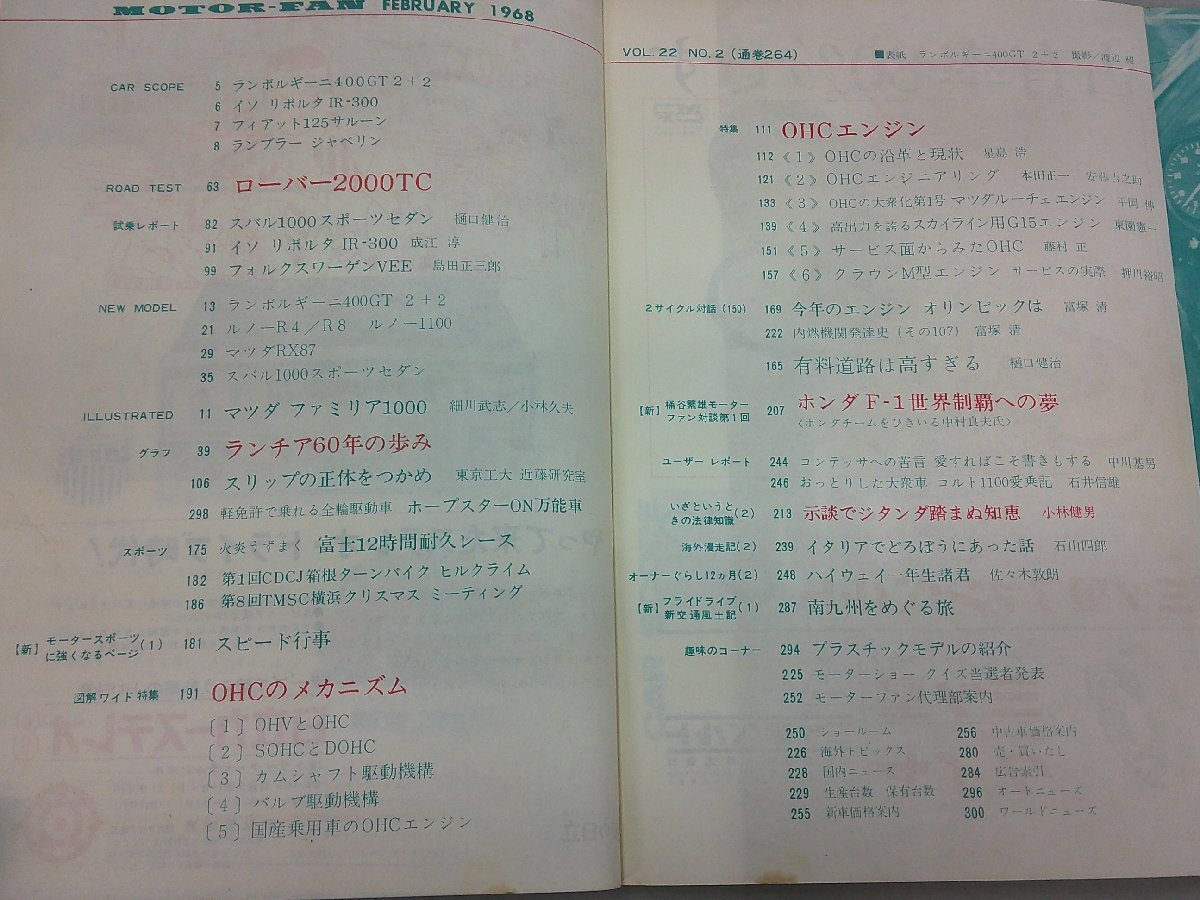 MOTOR-FAN FEBRUARY 1968
CAR SCOPE 5 ランボルギーニ400GT 2+2
6 イソ リボルタ IR-300
7 フィアット125サルーン
8 ランブラー ジャベリン
ROAD TEST 63 ローバー2000TC
試乗レポート 82 スバル1000スポーツセダン 樋口健治
91 イソ リボルタ IR-300 成江 淳
99 フォルクスワーゲンVEE 島田正三郎
NEW MODEL 13 ランボルギーニ400GT 2+2
21 ルノーR4/R8 ルノー1100
29 マツダRX87
35 スバル1000スポーツセダン
ILLUSTRATED 11 マツダ ファミリア1000 細川武志/小林久夫
グラフ 39 ランチア60年の歩み
106 スリップの正体をつかめ 東京工大 近藤研究室
298 軽免許で乗れる全輪駆動車 ホープスターON万能車
スポーツ 175 火炎うずまく 富士12時間耐久レース
182 第1回CDCJ箱根ターンパイク ヒルクライム
186 第8回TMSC横浜クリスマス ミーティング
【新】モータースポーツに強くなるページ(1) 181 スピード行事
図解ワイド特集 191 OHCのメカニズム
〔1〕OHVとOHC
〔2〕SOHCとDOHC
〔3〕カムシャフト駆動機構
〔4〕バルブ駆動機構
〔5〕国産乗用車のOHCエンジン
VOL. 22 NO. 2 (通巻264) ■表紙 ランボルギーニ400GT 2+2 撮影/渡辺
特集 111 OHCエンジン
112 《1》OHCの沿革と現状 星島 浩
121 《2》OHCエンジニアリング 本田正一
133 《3》OHCの大衆化第1号 マツダルーチェエンジン 平岡
139 《4》高出力を誇るスカイライン用G15エンジン 東園憲一
151 《5》サービス面からみたOHC 藤村 正
157 《6》クラウンM型エンジン サービスの実際
2サイクル対話(150) 169 今年のエンジン オリンピックは 富塚 清
222 内燃機関発達史(その107) 富塚 清
165 有料道路は高すぎる 樋口健治
【新】桶谷繁雄モーターファン対談第1回 207 ホンダF-1世界制覇への夢
〈ホンダチームをひきいる中村良夫氏〉
ユーザー レポート 244 コンテッサへの苦言 愛すればこそ書きもする 中川基男
246 おっとりした大衆車 コルト1100愛乗記 石井信雄
いざというときの法律知識(2) 213 示談でジタンダ踏まぬ知恵 小林健男
海外漫走記(2) 239 イタリアでどろぼうにあった話 石山四郎
オーナーぐらし12ヵ月(2) 248 ハイウェイ一年生諸君 佐々木敦朗
【新】プライドライブ新交通風土記(1) 287 南九州をめぐる旅
趣味のコーナー 294 プラスチックモデルの紹介
225 モーターショー クイズ当選者発表
252 モーターファン代理部案内
250 ショールーム 256 中古車価格案内
226 海外トピックス 280 売・買いたし
228 国内ニュース 284 広告索引
229 生産台数 保有台数 296 オートニューズ
255 新車価格案内 300 ワールドニューズ